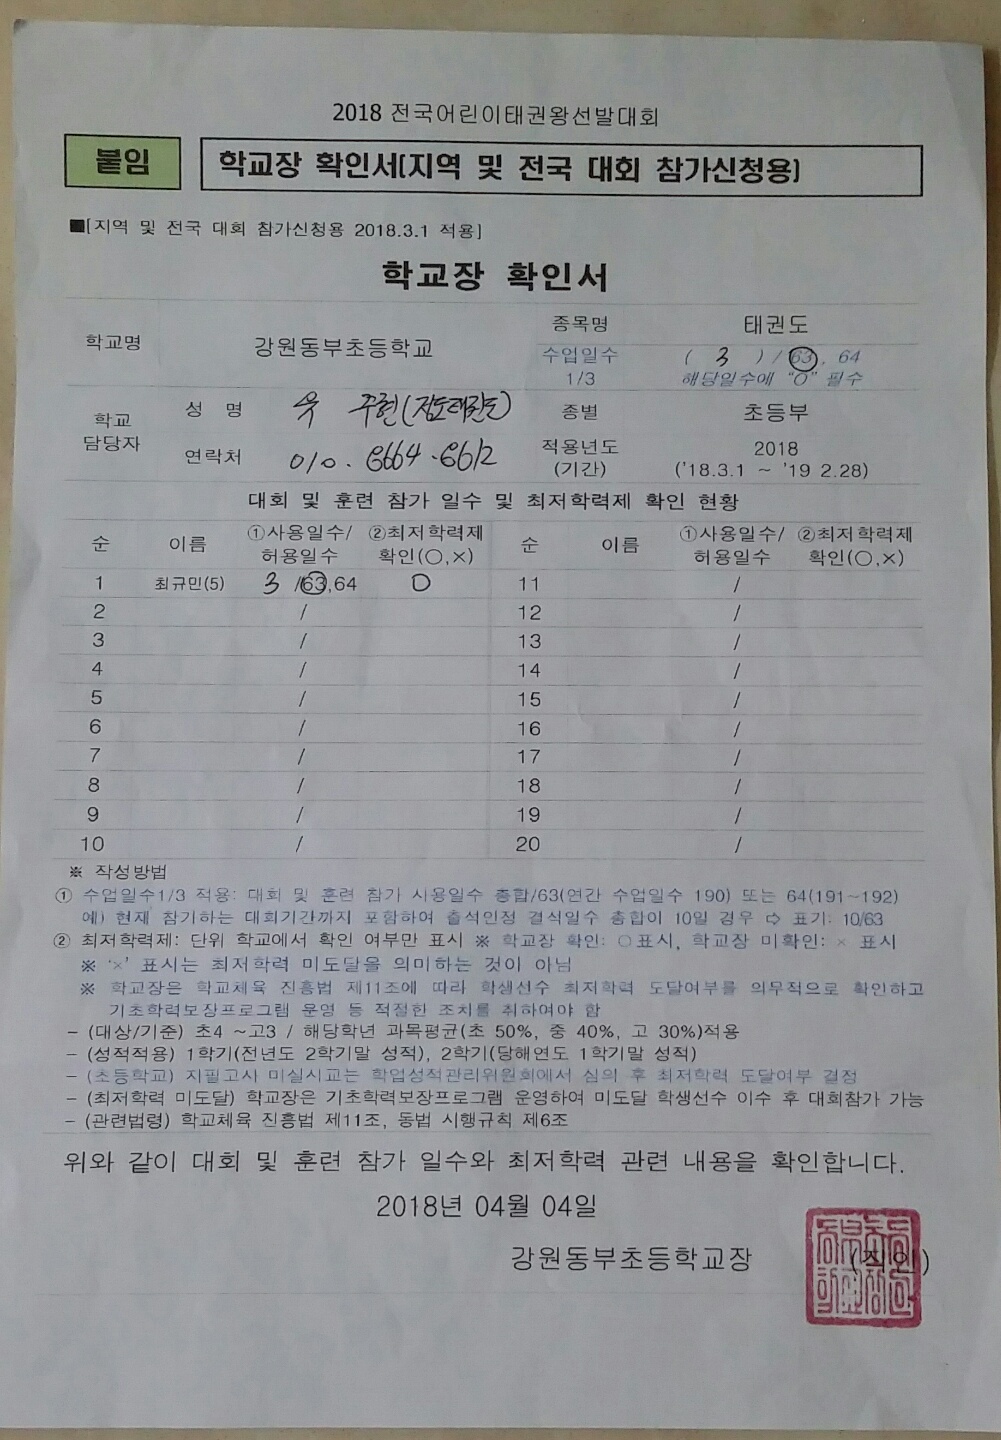 2018 전국어린이태권왕선발대회
붙임 학교장 확인서(지역 및 전국 대회 참가신청용)
■[지역 및 전국 대회 참가신청용 2018.3.1 적용]
학교장 확인서
학교명 강원동부초등학교 종목명 태권도
수업일수 1/3 ( 3 ) / 63, 64
해당일수에 "O" 필수
학교 담당자 성 명 주현 종별 초등부
연락처 010. 6664.6612 적용년도 (기간) 2018 ('18.3.1 ~ '19 2.28)
대회 및 훈련 참가 일수 및 최저학력제 확인 현황
순 이름 ①사용일수/허용일수 ②최저학력제 확인(○,×) 순 이름 ①사용일수/허용일수 ②최저학력제 확인(○,×)
1 최규민(5) 3 /63,64 O 11 /
2 / 12 /
3 / 13 /
4 / 14 /
5 / 15 /
6 / 16 /
7 / 17 /
8 / 18 /
9 / 19 /
10 / 20 /
※ 작성방법
① 수업일수1/3 적용: 대회 및 훈련 참가 사용일수 총합/63(연간 수업일수 190) 또는 64(191~192)
예) 현재 참가하는 대회기간까지 포함하여 출석인정 결석일수 총합이 10일 경우 ⇨ 표기: 10/63
② 최저학력제: 단위 학교에서 확인 여부만 표시 ※ 학교장 확인: ○표시, 학교장 미확인: × 표시
※ '×' 표시는 최저학력 미도달을 의미하는 것이 아님
※ 학교장은 학교체육 진흥법 제11조에 따라 학생선수 최저학력 도달여부를 의무적으로 확인하고
기초학력보장프로그램 운영 등 적절한 조치를 취하여야 함
- (대상/기준) 초4 ~고3 / 해당학년 과목평균(초 50%, 중 40%, 고 30%)적용
- (성적적용) 1학기(전년도 2학기말 성적), 2학기(당해연도 1학기말 성적)
- (초등학교) 지필고사 미실시교는 학업성적관리위원회에서 심의 후 최저학력 도달여부 결정
- (최저학력 미도달) 학교장은 기초학력보장프로그램 운영하여 미도달 학생선수 이수 후 대회참가 가능
- (관련법령) 학교체육 진흥법 제11조, 동법 시행규칙 제6조
위와 같이 대회 및 훈련 참가 일수와 최저학력 관련 내용을 확인합니다.
2018년 04월 04일
강원동부초등학교장 (직인)